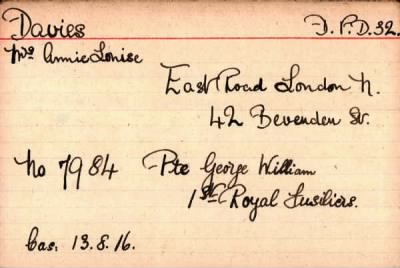 Davies F.P.D.32.
Mrs Annie Louise
East Road London N.
42 Bevenden St.
No 7984 Pte George William
1st Royal Fusiliers.
Cas: 13.8.16.